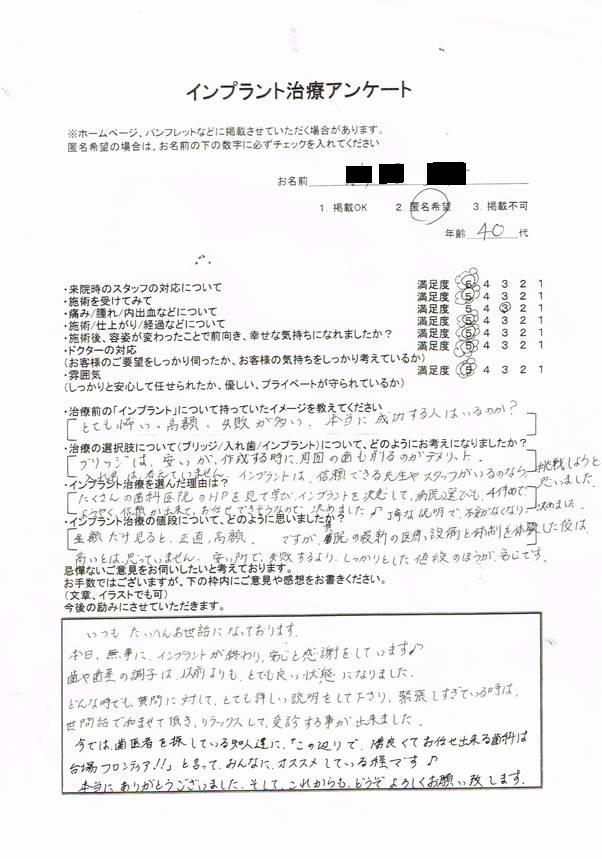 インプラント治療アンケート
※ホームページ、パンフレットなどに掲載させていただく場合があります。
匿名希望の場合は、お名前の下の数字に必ずチェックを入れてください
お名前
1. 掲載OK 2. 匿名希望 3. 掲載不可
年齢 40 代
・来院時のスタッフの対応について 満足度 5 4 3 2 1
・施術を受けてみて 満足度 5 4 3 2 1
・痛み/腫れ/内出血などについて 満足度 5 4 3 2 1
・施術/仕上がり/経過などについて 満足度 5 4 3 2 1
・施術後、容姿が変わったことで前向き、幸せな気持ちになれましたか? 満足度 5 4 3 2 1
・ドクターの対応 満足度 5 4 3 2 1
(お客様のご要望をしっかり伺ったか、お客様の気持ちをしっかり考えているか)
・雰囲気 満足度 5 4 3 2 1
(しっかりと安心して任せられたか、優しい、プライベートが守られているか)
・治療前の「インプラント」について持っていたイメージを教えてください
とても怖い。高額。失敗が多い。本当に成功する人はいるのか?
・治療の選択肢について(ブリッジ/入れ歯/インプラント)について、どのようにお考えになりましたか?
ブリッジは、安いが、作成する時に、周囲の歯も削るのがデメリット。
入れ歯は、考えていません。インプラントは、信頼できる先生やスタッフがいるのなら挑戦しようと思いました。
・インプラント治療を選んだ理由は?
たくさんの歯科医院のHPを見て学びインプラントを決意して、病院選びも、
ようやく信頼が出来て、お任せできそうなので決めました♪ 丁寧な説明で、不安がなくなり決めました。
・インプラント治療の値段について、どのように思いましたか?
金額だけ見ると、正直、高額。ですが、貴院の最新の医療、設備と体制を体験した後は、
高いとは、思っていません。安い所で、失敗するより、しっかりとした値段のほうが、安心です。
忌憚ないご意見をお伺いしたいと考えております。
お手数ではございますが、下の枠内にご意見や感想をお書きください。
(文章、イラストでも可)
今後の励みにさせていただきます。
いつも たいへんお世話になっております。
本日、無事に、インプラントが終わり、安心と感謝をしています♪
歯や歯茎の調子は、以前よりも、とても良い状態になりました。
どんな時でも、質問に対して、とても詳しい説明をして下さり、緊張しすぎている時は、
世間話で和ませて頂き、リラックスして、受診する事が出来ました。
今では、歯医者を探している知人達に、「この辺りで、腕良くてお任せ出来る歯科は
台場フロンティア!!」と言って、みんなに、オススメしている程です♪
本当にありがとうございました。そして、これからも、どうぞよろしくお願い致します。